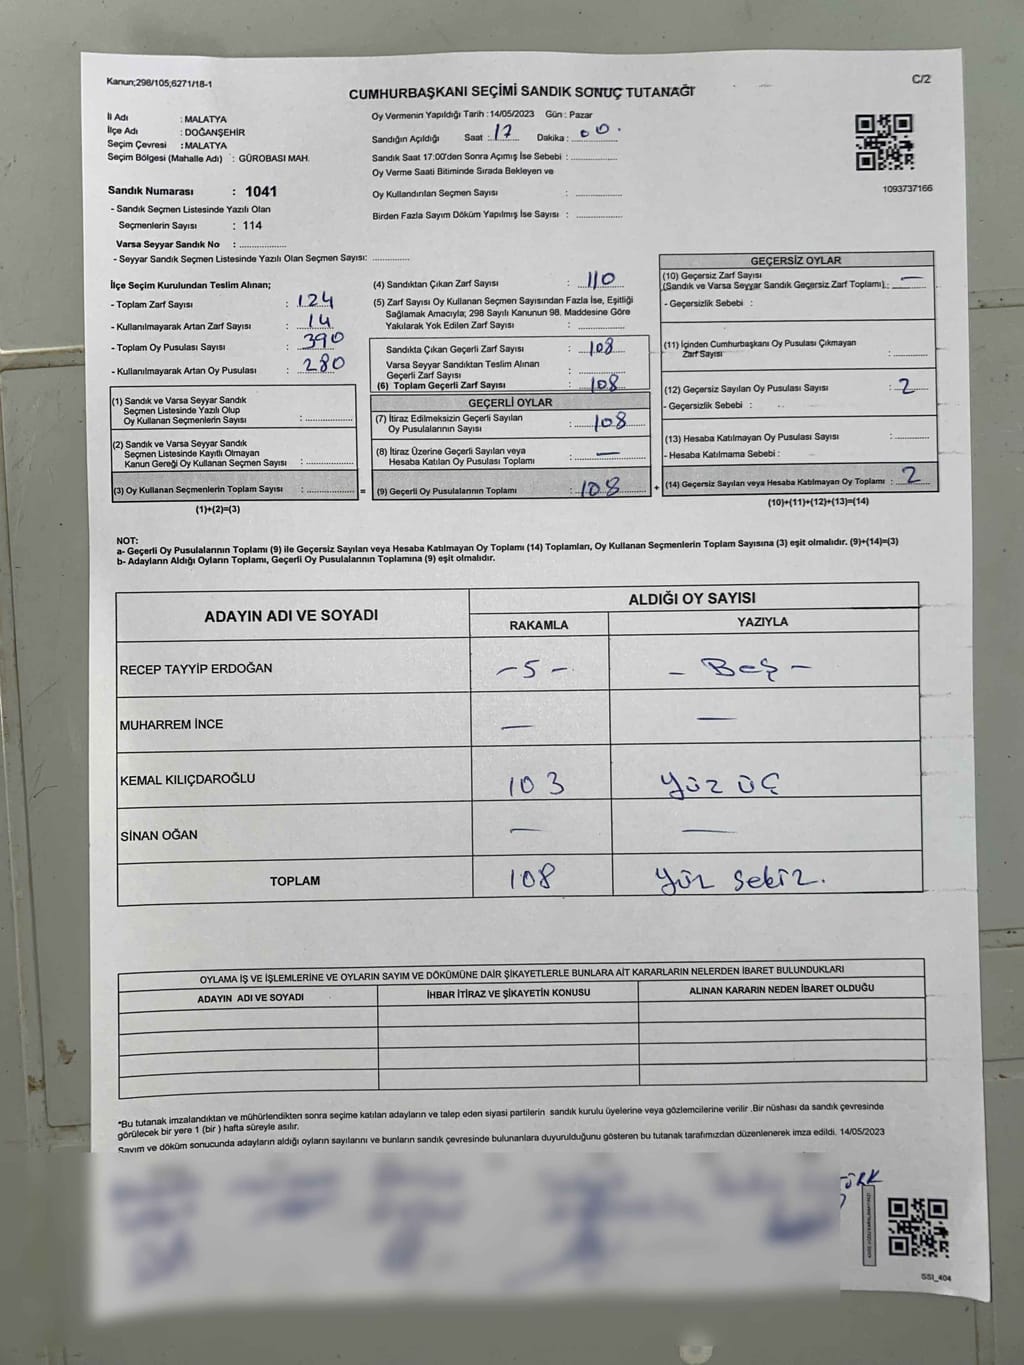 Kanun;298/105;6271/18-1
C/2
CUMHURBAŞKANI SEÇİMİ SANDIK SONUÇ TUTANAĞI
İl Adı : MALATYA
İlçe Adı : DOĞANŞEHİR
Seçim Çevresi : MALATYA
Seçim Bölgesi (Mahalle Adı) : GÜROBASI MAH.
Sandık Numarası : 1041
- Sandık Seçmen Listesinde Yazılı Olan
Seçmenlerin Sayısı : 114
Varsa Seyyar Sandık No : ..............
- Seyyar Sandık Seçmen Listesinde Yazılı Olan Seçmen Sayısı: ............
Oy Vermenin Yapıldığı Tarih : 14/05/2023 Gün : Pazar
Sandığın Açıldığı Saat : 17 Dakika : 00.
Sandık Saat 17:00'den Sonra Açımış İse Sebebi : ..............
Oy Verme Saati Bitiminde Sırada Bekleyen ve
Oy Kullandırılan Seçmen Sayısı : ..............
Birden Fazla Sayım Döküm Yapılmış İse Sayısı : ..............
1093737166
İlçe Seçim Kurulundan Teslim Alınan;
- Toplam Zarf Sayısı : 124
- Kullanılmayarak Artan Zarf Sayısı : 14
- Toplam Oy Pusulası Sayısı : 390
- Kullanılmayarak Artan Oy Pusulası : 280
(1) Sandık ve Varsa Seyyar Sandık
Seçmen Listesinde Yazılı Olup
Oy Kullanan Seçmenlerin Sayısı : ..............
(2) Sandık ve Varsa Seyyar Sandık
Seçmen Listesinde Kayıtlı Olmayan
Kanun Gereği Oy Kullanan Seçmen Sayısı : ..............
(3) Oy Kullanan Seçmenlerin Toplam Sayısı : ..............
(1)+(2)=(3)
(4) Sandıktan Çıkan Zarf Sayısı : 110
(5) Zarf Sayısı Oy Kullanan Seçmen Sayısından Fazla İse, Eşitliği
Sağlamak Amacıyla; 298 Sayılı Kanunun 98. Maddesine Göre
Yakılarak Yok Edilen Zarf Sayısı : ..............
Sandıkta Çıkan Geçerli Zarf Sayısı : 108
Varsa Seyyar Sandıktan Teslim Alınan
Geçerli Zarf Sayısı : ..............
(6) Toplam Geçerli Zarf Sayısı : 108
GEÇERLİ OYLAR
(7) İtiraz Edilmeksizin Geçerli Sayılan
Oy Pusulalarının Sayısı : 108
(8) İtiraz Üzerine Geçerli Sayılan veya
Hesaba Katılan Oy Pusulası Toplamı : —
= (9) Geçerli Oy Pusulalarının Toplamı : 108 +
GEÇERSİZ OYLAR
(10) Geçersiz Zarf Sayısı
(Sandık ve Varsa Seyyar Sandık Geçersiz Zarf Toplamı) : —
- Geçersizlik Sebebi :
(11) İçinden Cumhurbaşkanı Oy Pusulası Çıkmayan
Zarf Sayısı : ..............
(12) Geçersiz Sayılan Oy Pusulası Sayısı : 2
- Geçersizlik Sebebi :
(13) Hesaba Katılmayan Oy Pusulası Sayısı : ..............
- Hesaba Katılmama Sebebi :
(14) Geçersiz Sayılan veya Hesaba Katılmayan Oy Toplamı : 2
(10)+(11)+(12)+(13)=(14)
NOT:
a- Geçerli Oy Pusulalarının Toplamı (9) ile Geçersiz Sayılan veya Hesaba Katılmayan Oy Toplamı (14) Toplamları, Oy Kullanan Seçmenlerin Toplam Sayısına (3) eşit olmalıdır. (9)+(14)=(3)
b- Adayların Aldığı Oyların Toplamı, Geçerli Oy Pusulalarının Toplamına (9) eşit olmalıdır.
ADAYIN ADI VE SOYADI
ALDIĞI OY SAYISI
RAKAMLA YAZIYLA
RECEP TAYYİP ERDOĞAN -5- - Beş -
MUHARREM İNCE — —
KEMAL KILIÇDAROĞLU 103 yüz üç
SİNAN OĞAN — —
TOPLAM 108 yüz sekiz.
OYLAMA İŞ VE İŞLEMLERİNE VE OYLARIN SAYIM VE DÖKÜMÜNE DAİR ŞİKAYETLERLE BUNLARA AİT KARARLARIN NELERDEN İBARET BULUNDUKLARI
ADAYIN ADI VE SOYADI İHBAR İTİRAZ VE ŞİKAYETİN KONUSU ALINAN KARARIN NEDEN İBARET OLDUĞU
*Bu tutanak imzalandıktan ve mühürlendikten sonra seçime katılan adayların ve talep eden siyasi partilerin sandık kurulu üyelerine veya gözlemcilerine verilir .Bir nüshası da sandık çevresinde
görülecek bir yere 1 (bir ) hafta süreyle asılır.
Sayım ve döküm sonucunda adayların aldığı oyların sayılarını ve bunların sandık çevresinde bulunanlara duyurulduğunu gösteren bu tutanak tarafımızdan düzenlenerek imza edildi. 14/05/2023
SSI_404